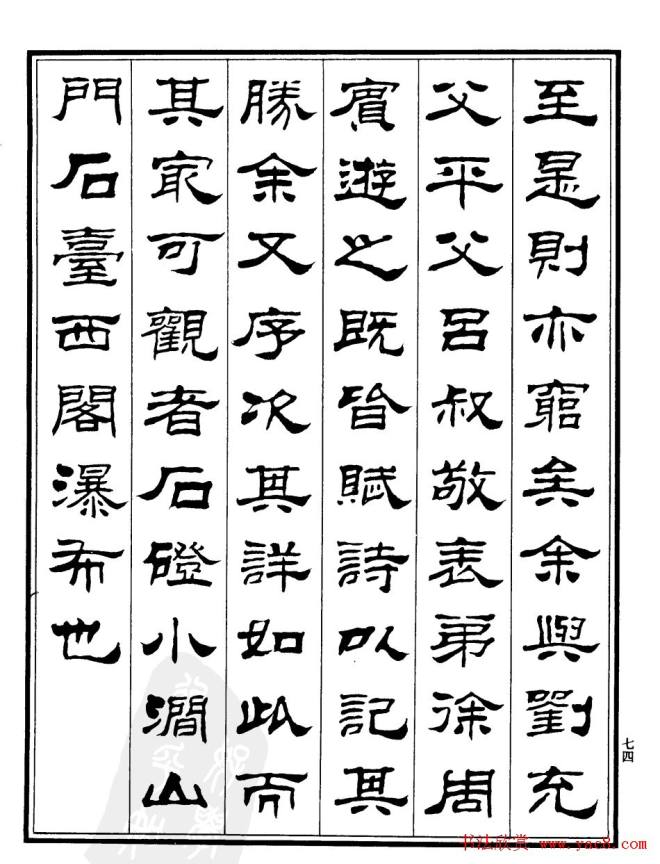 至是則亦窮矣余與劉充
父平父呂叔敬表弟徐周
賓遊之既皆賦詩以記其
勝余又序次其詳如此而
其最可觀者石磴小澗山
門石臺西閣瀑布也
七四
书法欣赏 www.yac8.com